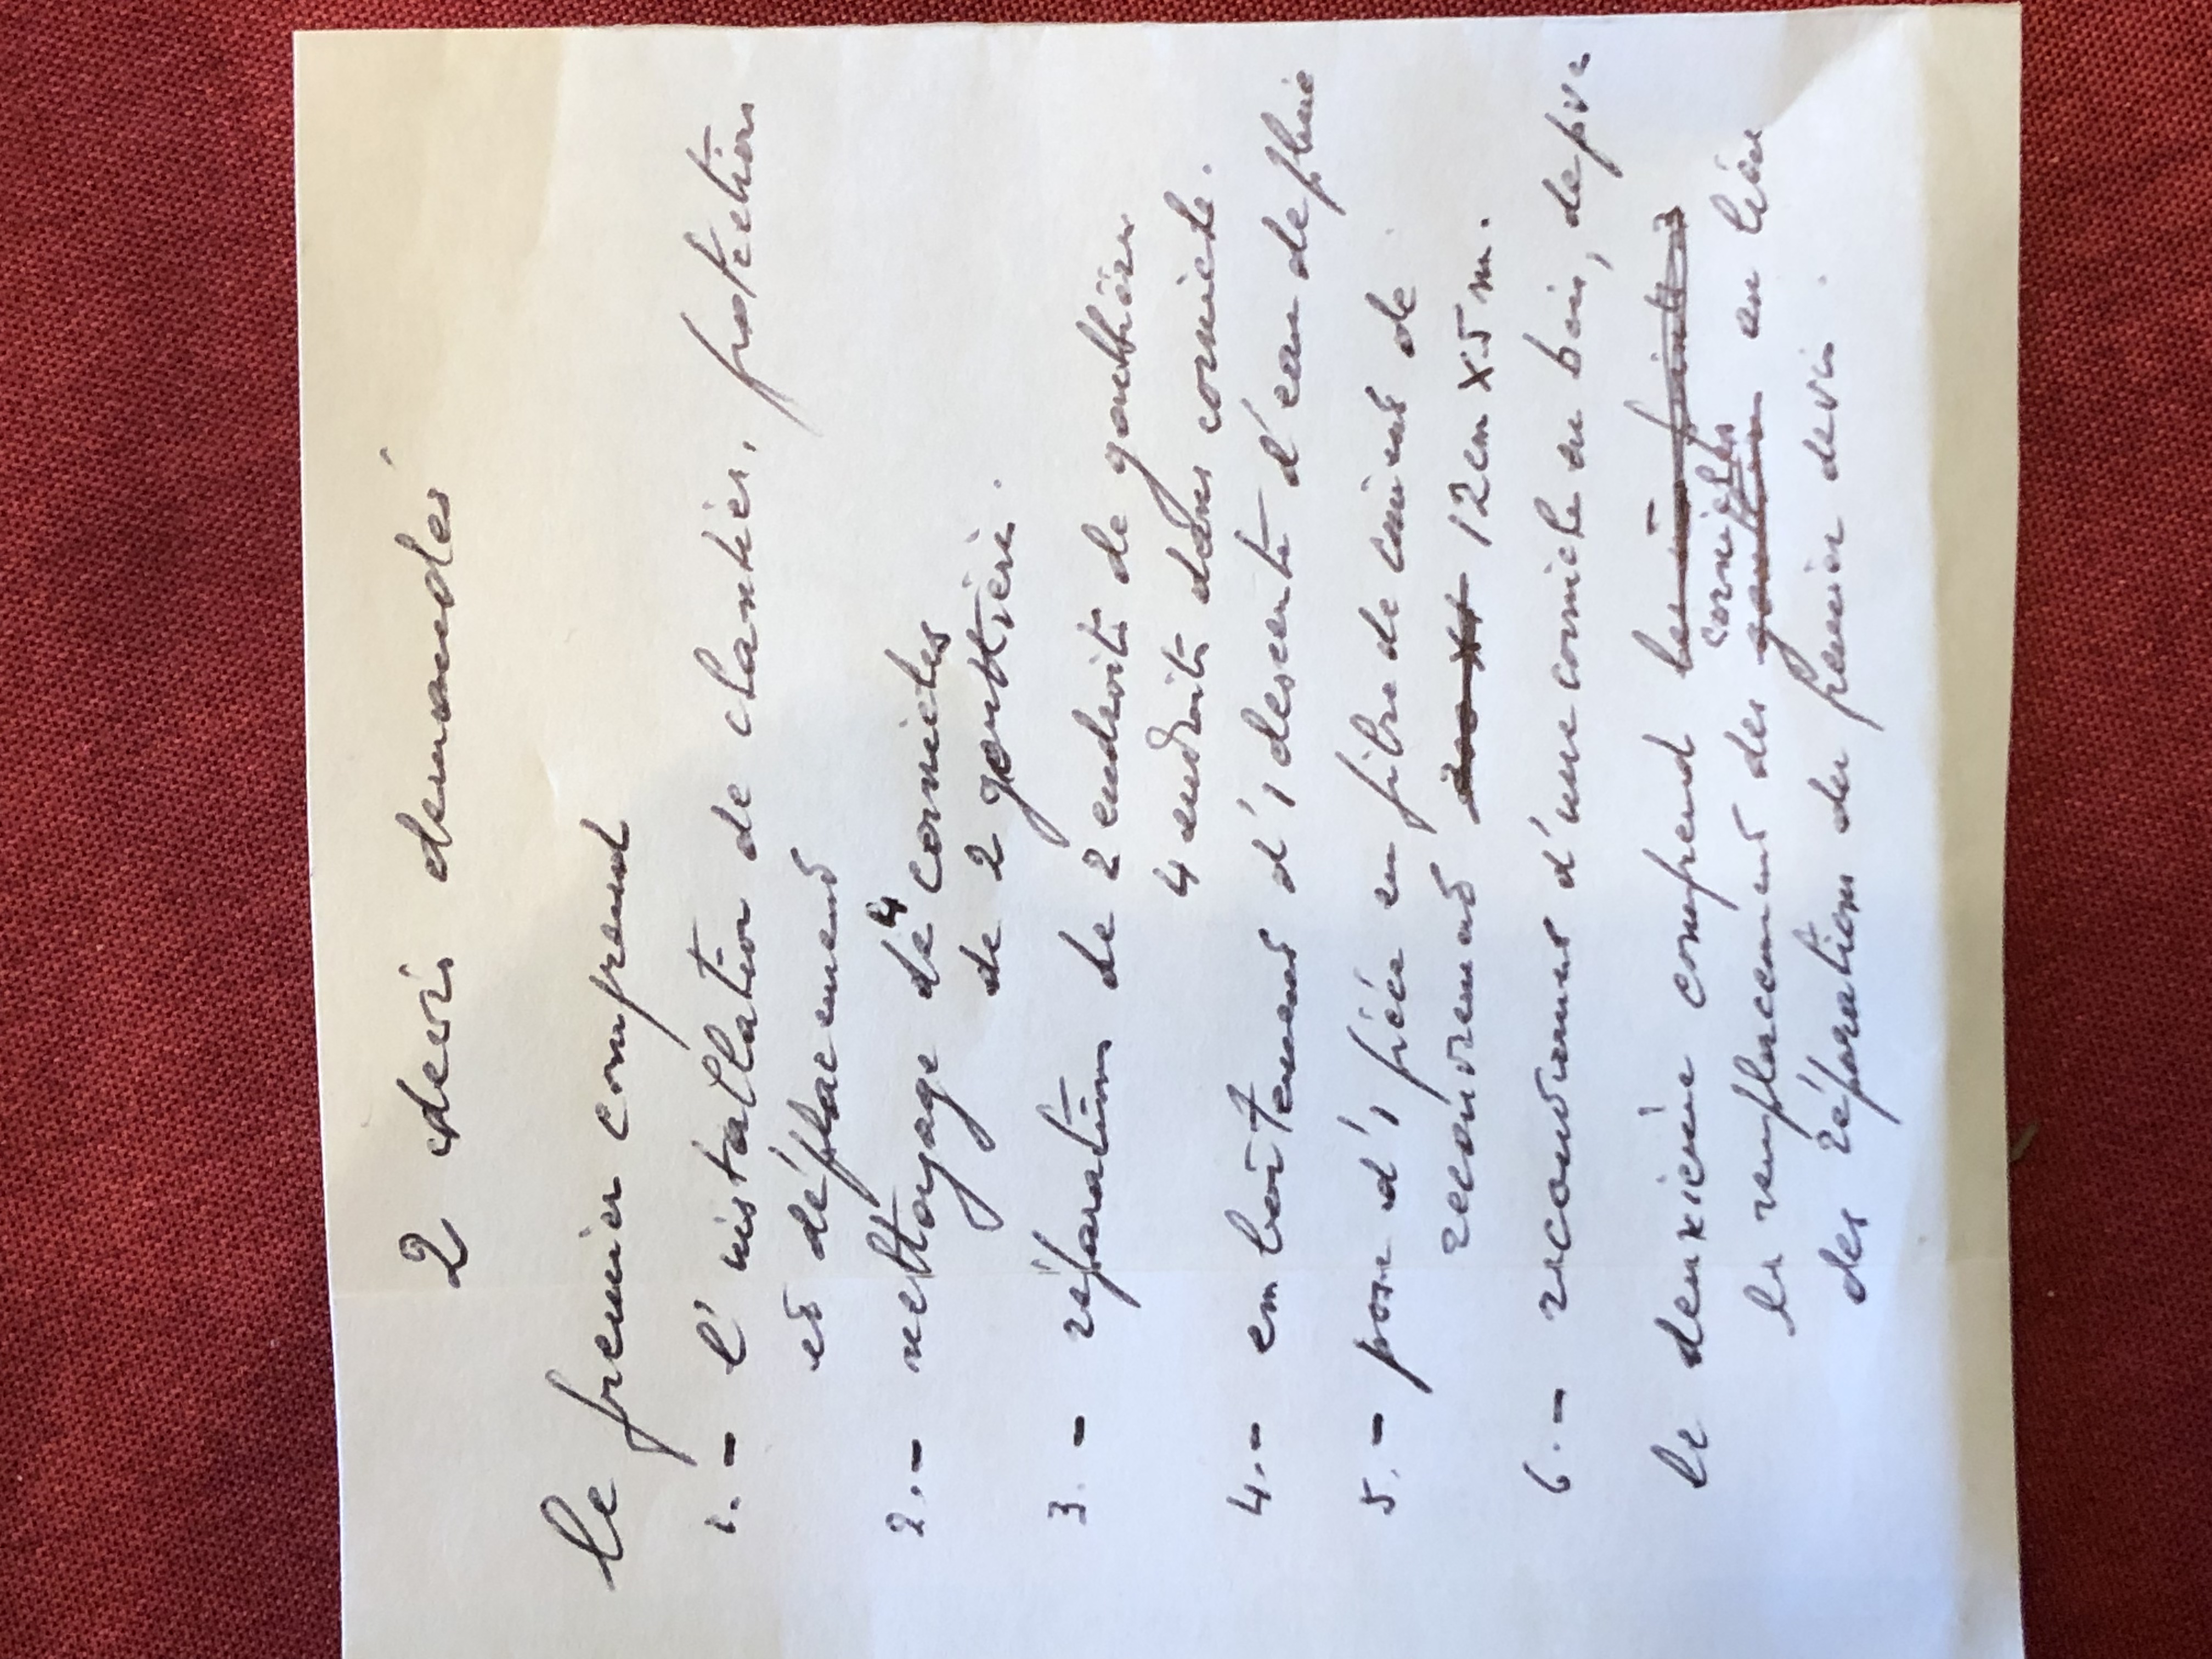 2 devis demandés
Le premier comprend
1.- l'installation de chantier, protection
et déplacement
2.- nettoyage de 4 corniches
de 2 gouttière.
3.- réparation de 2 endroits de gouttière
4 endroits dans corniche.
4.- emboîtement d'1 descente d'eau de pluie
5.- pose d'1 pièce en fibre de ciment de
recouvrement 12cm x 5 m.
6.- recouvrement d'une corniche en bois, de pvc
Le deuxième comprend
corniches
le remplacement des en lieu
des réparations du premier devis.